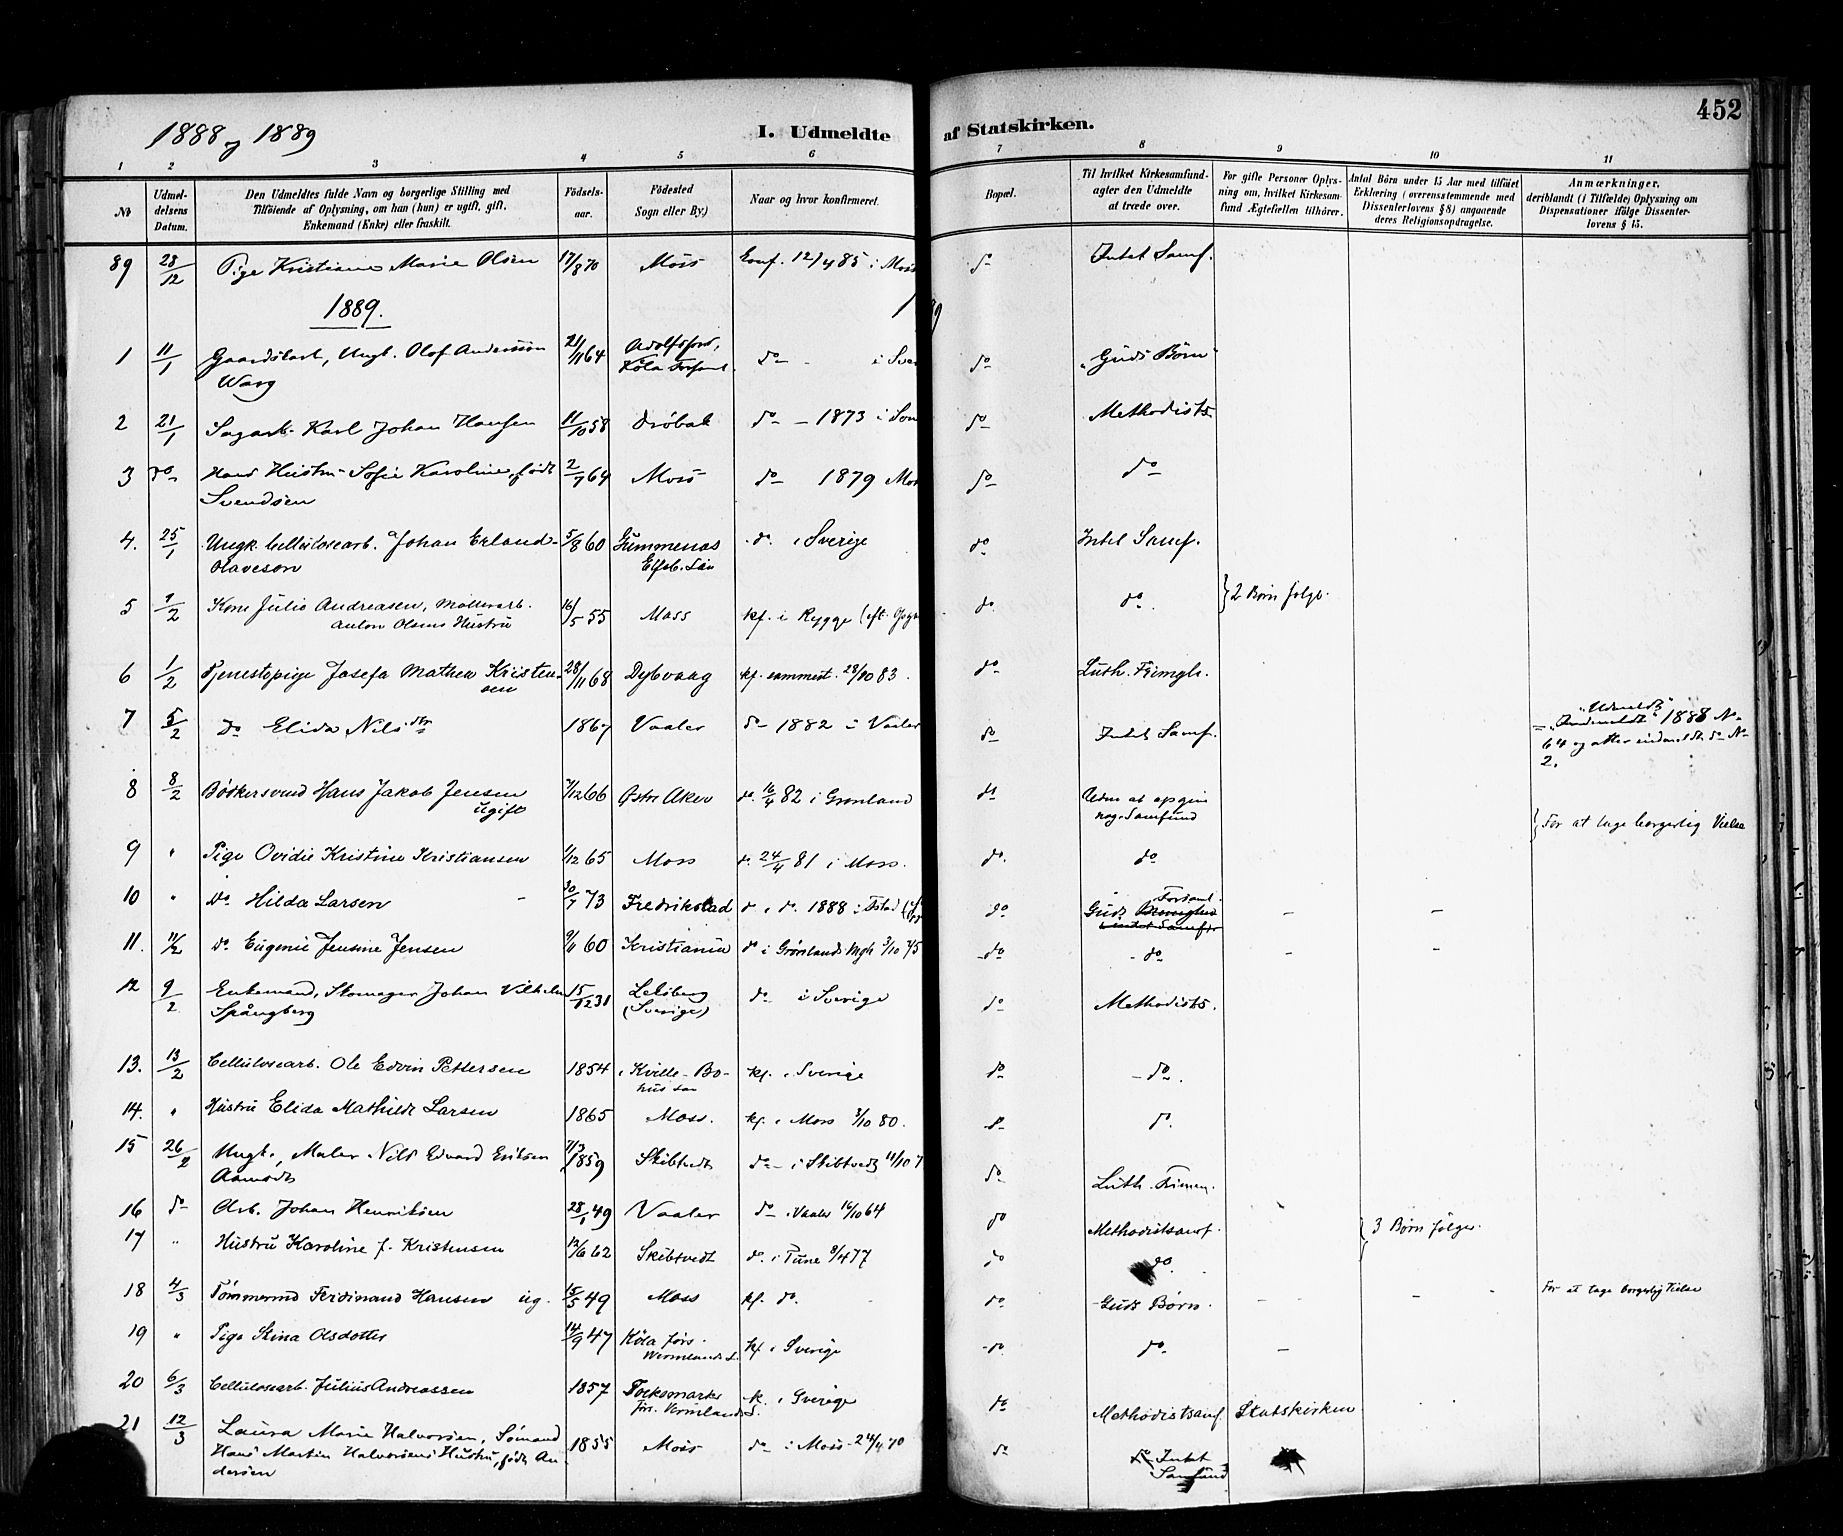 1888 og 1889
I. Udmeldte af Statskirken.
452
1 2 3 4 5 6 7 8 9 10 11
No
Udmel-
delsens
Datum.
Den Udmeldtes fulde Navn og borgerlige Stilling med
Tilføiende af Oplysning, om han (hun) er ugift, gift,
Enkemand (Enke) eller fraskilt.
Fødsels-
aar.
Fødested
Sogn eller By.)
Naar og hvor konfirmeret.
Bopæl.
Til hvilket Kirkesamfund-
agter den Udmeldte
at træde over.
For gifte Personer Oplys-
ning om, hvilket Kirkesam-
fund Ægtefællen tilhører.
Antal Børn under 15 Aar med tilføiet
Erklæring (overensstemmende med
Dissenterlovens § 8) angaaende
deres Religionsopdragelse.
Anmærkninger,
deriblandt (i Tilfælde) Oplysning om
Dispensationer ifølge Dissenter-
lovens § 15.
89 28/12 Pige Kristiane Marie Olsen 17/8 70 Moss Conf. 12/4 85 i Moss do Intet Samf.
1889.
1 11/1 Gaardskarl, Ungk. Olof Andersson 21/11 64 Adolfsfors, do - i Sver do "Guds Børn"
Warg Köla Forsaml.
2 21/1 Sagarb. Karl Johan Hansen 11/10 58 Drøbak do - 1873 i Son do Methodists.
3 do Hans Hustru Sofie Karoline, født 2/7 64 Moss do 1879 Mos do do
Svendsen
4. 25/1 Ungk. Cellulosearb. Johan Erland 5/8 60 Gummenas do i Sverige do Intet Samf.
Olaveson Elfsb. Län
5 1/2 Kone Julie Andreasen, Møllerarb. 16/5 55 Moss kf. i Rygge do do. } 2 Børn følge.
Anton Olsens Hustru
6 1/2 Tjenestepige Josefa Mathea Kristen- 28/11 68 Dybvaag kf. sammest. 28/10 83. do Luth. Frimgh.
sen
7 5/2 do Elida Nilsdtr 1867 Vaaler do 1882 i Vaaler do Intet Samf. "Udmeldt"
1888 No
64 og atter indmeldt do No
2.
8 8/2 Bødkersvend Hans Jakob Jensen 7/12 66 Østre Aker do. 16/4 82 i Grønland do Uden at opgive
ugift nog. Samfund
} For at tage borgerlig Vielse
9 " Pige Ovidie Kristine Kristiansen 1/12 65 Moss do 24/4 81 i Moss. do. do
10 " do. Hilda Larsen 30/7 73 Fredrikstad do i do. 1888 i Fstad do Guds Forsaml. - -
11. 11/2 do Eugenie Jensine Jensen 9/11 60 Kristiania do i Grønlands Mgh 3/10 75 do - do - -
12 9/2 Enkemand, Skomager Johan Vilhelm 15/12 31 Lekberg do i Sverige do Methodists.
Spångberg (Sverige)
13. 13/2 Cellulosearb. Ole Edvin Pettersen 1854 i Kville - Bo- kf. i Sverige do - do.
hus Län
14. " Hustru Elida Mathilde Larsen 1865 Moss. kf. i Moss 3/10 80. do do.
15 26/2 Ungk., Maler Nils Edvard Eriksen 7/3 1859 Skibtvedt do - i Skibtvedt 11/10 7 do Luth. Frimen.
Aamodt
16 do Arb. Johan Henriksen 28/1 49 Vaaler do i Vaaler 16/10 64 do Methodistsamf. } 3 Børn følger.
17 " Hustru Karoline f. Kristensen 12/6 62 Skibtvedt do. i Tune 8/4 77 do do.
18 4/3 Tømmermd Ferdinand Hansen ug. 15/5 49 Moss kf. do. do. Guds Børn. - - For at tage borgerlig Vielse
19 " Pige Stina Olsdotter 14/9 47 Köla förs. kf. i Sverige do do. -
Wermlands L.
20 6/3 Cellulosearb. Julius Andreassen 1857 Tocksmarks k. i Sverige do Methodistsamf. Statskirken
förs. Vermlands L.
21 12/3 Laura Marie Halvorsen, Sømand 1855 Moss do i Moss 24/4 70 do Intet
Hans Martin Halvorsens Hustru, født An- Samfund
dersen